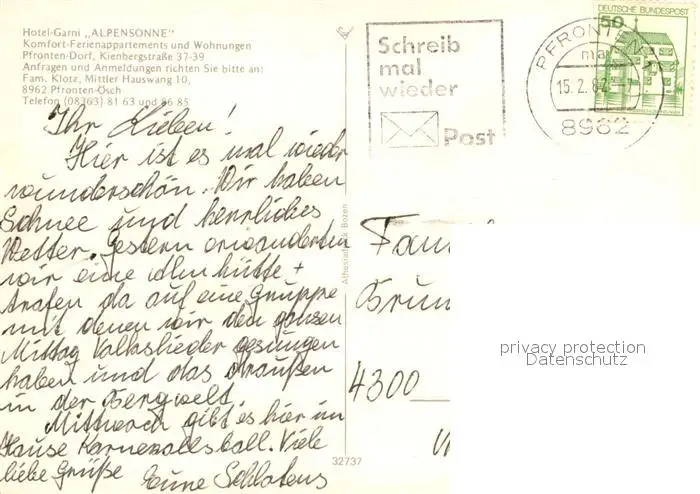 Hotel-Garni „ALPENSONNE"
Komfort-Ferienappartements und Wohnungen
Pfronten-Dorf, Kienbergstraße 37-39
Anfragen und Anmeldungen richten Sie bitte an:
Fam. Klotz, Mittler Hauswang 10,
8962 Pfronten-Ösch
Telefon (08363) 81 63 und 86 85
Ihr Lieben!
Hier ist es mal wieder
wunderschön. Wir haben
Schnee und herrliches
Wetter. Gestern erwanderten
wir eine Almhütte +
trafen da auf eine Gruppe
mit denen wir den ganzen
Mittag Volkslieder gesungen
haben und das draußen
in der Bergwelt.
Mittwoch gibt es hier im
Hause Karnevalsball. Viele
liebe Grüße Eure
Schreib
mal
wieder
Post
PFRONTEN
15.2.82
8962
50
DEUTSCHE BUNDESPOST
Athesiadruck Bozen
Fam
Brun
4300
32737
privacy protection
Datenschutz